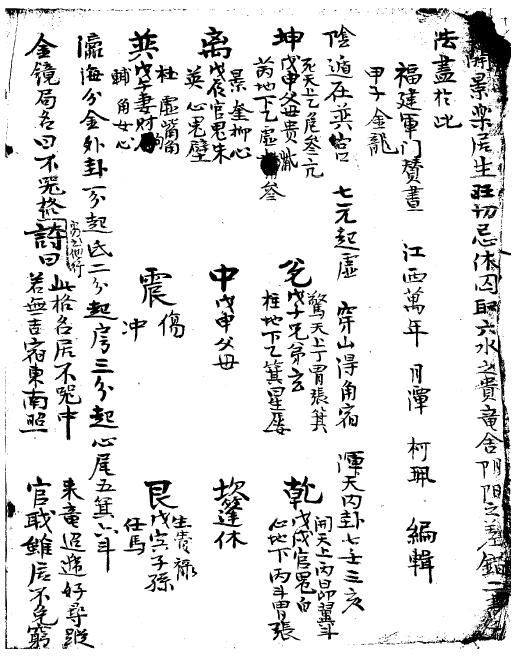 開景樂居生旺切忌休囚取六水之貴竜舍阴阳之
法盡於此
福建軍门贊畫 江西萬年 月潭 柯珮 編輯
甲子金龍
陰遁在巽宫 七元起虛 穿山得角宿 渾天内卦七壬三亥
坤 死天上乙尾参亢
戊申父母贵
芮地下乙虚
兊 驚天上丁胃張箕
戊子兄弟玄
柱地下乙箕星婁
乾 開天上丙昴翼斗
戊戌官鬼白
心地下丙斗胃張
离 景奎柳心
戊辰官鬼朱
英心鬼壁
中 戊申父母
坎 蓬休
巽 杜虚觜角
戊子妻財
輔角女心
震 傷
冲
艮 生贵禄
戊寅子孫
任馬
瀛海分金外卦一分起氐二分起房三分起心尾五箕六斗
金镜局名曰不呪格 詩曰 此格名居不呪中 来竜迢遞好尋蹤
若無吉宿東南照 官耺雖居不免窮